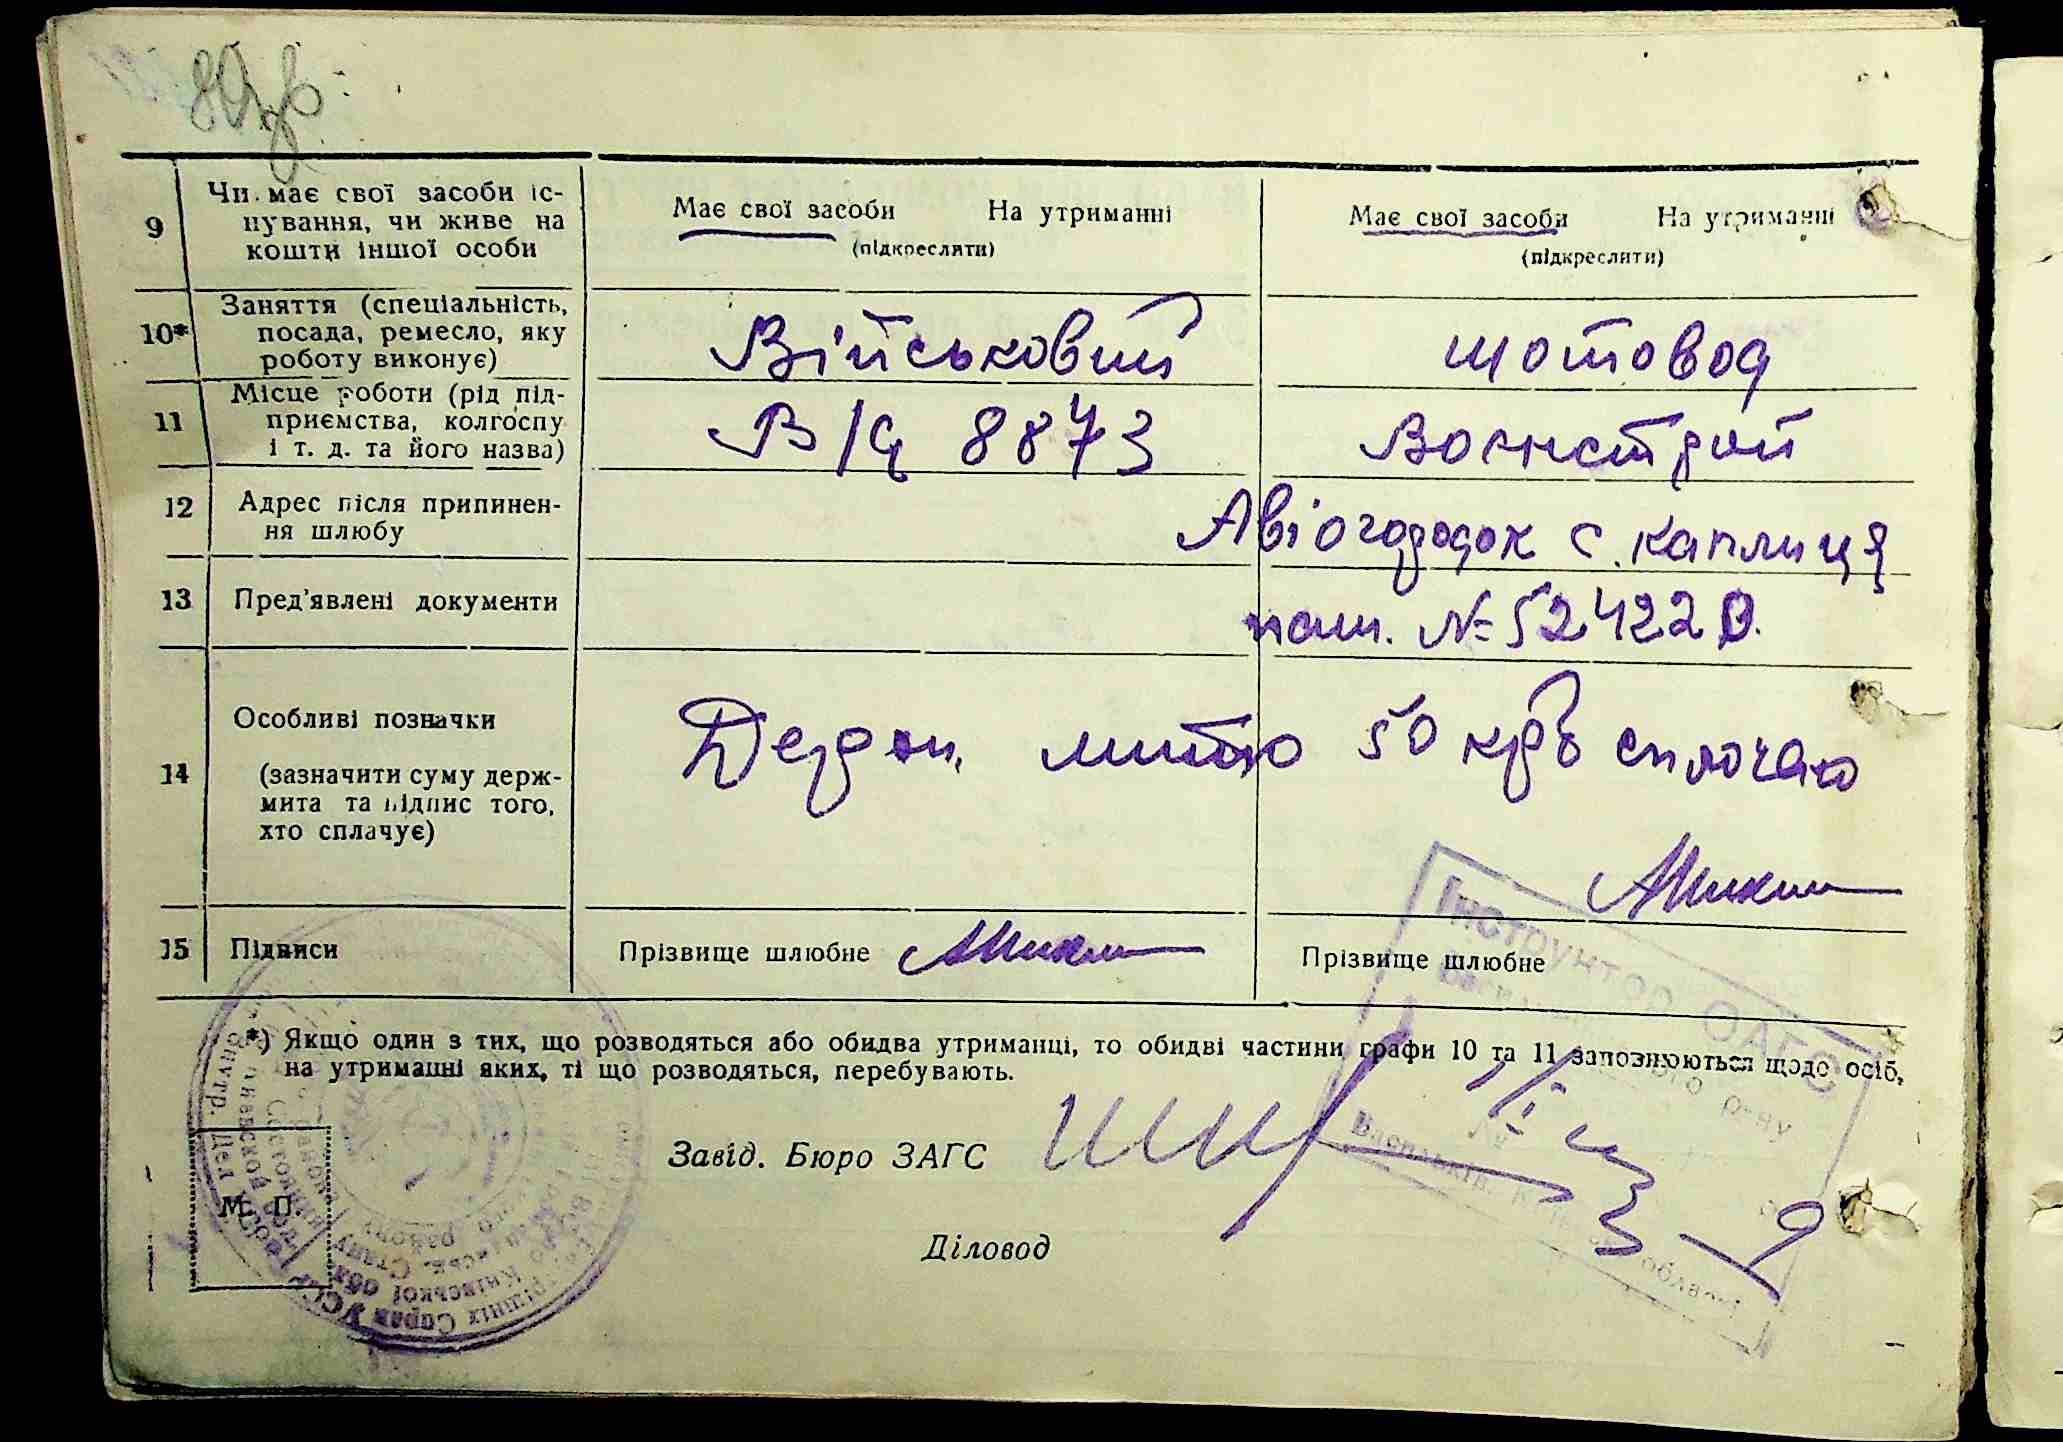 9
Чи має свої засоби іс-
нування, чи живе на
кошти іншої особи
Має свої засоби На утриманні
(підкреслити)
Має свої засоби На утриманні
(підкреслити)
10*
Заняття (спеціальність,
посада, ремесло, яку
роботу виконує)
Військовий
шотовод
11
Місце роботи (рід під-
приємства, колгоспу
і т. д. та його назва)
В/ч 8873
Воєнстрой
12
Адрес після припинен-
ня шлюбу
Авіогородок с. каплиця
13
Пред'явлені документи
пош. № 524220.
14
Особливі позначки
(зазначити суму держ-
мита та підпис того,
хто сплачує)
мито 50 крб сплочено
15
Підписи
Прізвище шлюбне
Прізвище шлюбне
*) Якщо один з тих, що розводяться або обидва утриманці, то обидві частини графи 10 та 11 заповнюються щодо осіб,
на утриманні яких, ті що розводяться, перебувають.
Інструктор ОАГС
Завід. Бюро ЗАГС
М. П.
Діловод